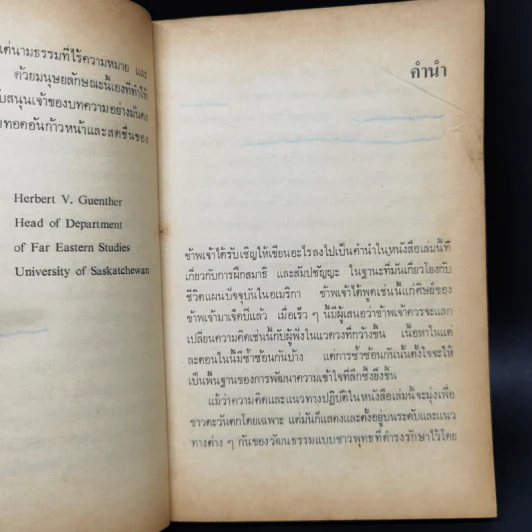 แต่นามธรรมที่ไร้ความหมาย และ
ด้วยมนุษยลักษณะนี้เองที่ทำให้
สนุนเจ้าของบทความอย่างมั่นคง
ทอดอันก้าวหน้าและสดชื่นของ
Herbert V. Guenther
Head of Department
of Far Eastern Studies
University of Saskatchewan
คำนำ
ข้าพเจ้าได้รับเชิญให้เขียนอะไรลงไปเป็นคำนำในหนังสือเล่มนี้ที่
เกี่ยวกับการฝึกสมาธิ และสัมปชัญญะ ในฐานะที่มันเกี่ยวโยงกับ
ชีวิตแผนปัจจุบันในอเมริกา ข้าพเจ้าได้พูดเช่นนี้แก่ศิษย์ของ
ข้าพเจ้ามาเจ็ดปีแล้ว เมื่อเร็ว ๆ นี้มีผู้เสนอว่าข้าพเจ้าควรจะแลก
เปลี่ยนความคิดเช่นนี้กับผู้ฟังในแวดวงที่กว้างขึ้น เนื้อหาในแต่
ละตอนในนี้มีซ้ำซ้อนกันบ้าง แต่การซ้ำซ้อนกันนั้นตั้งใจจะให้
เป็นพื้นฐานของการพัฒนาความเข้าใจที่ลึกซึ้งยิ่งขึ้น
แม้ว่าความคิดและแนวทางปฏิบัติในหนังสือเล่มนี้จะมุ่งเพื่อ
ชาวตะวันตกโดยเฉพาะ แต่มันก็แสดงและตั้งอยู่บนระดับและแนว
ทางต่าง ๆ กันของวัฒนธรรมแบบชาวพุทธที่ดำรงรักษาไว้โดย